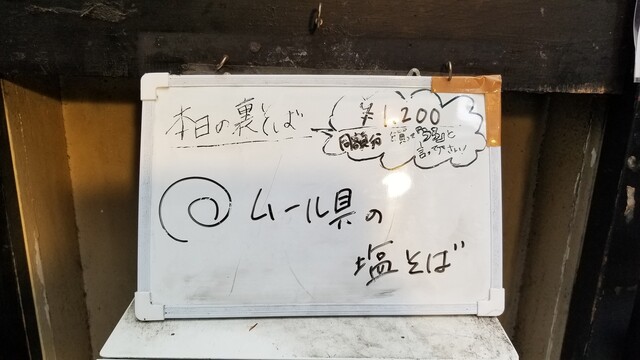 本日の裏そば
¥1,200
言って下さい!
@ムール県の
塩そば